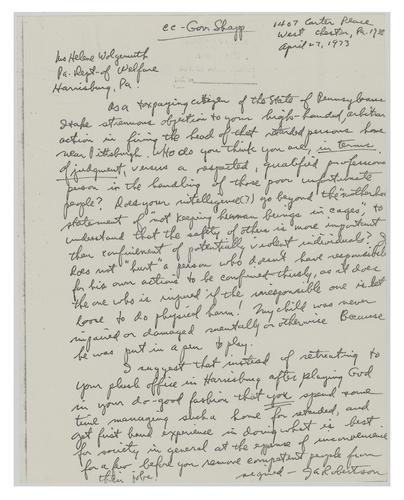 cc - Gov. Shapp
1407 Carter Place
West Chester, Pa. 19380
April 27, 1973
Ms Helene Wolgemuth
Pa. Dept. of Welfare
Harrisburg, Pa.
As a taxpaying citizen of the State of Pennsylvania
I take strenuous objection to your high-handed, arbitrary
action in firing the head of that retarded persons home
near Pittsburgh. Who do you think you are, in terms
of judgment, versus a respected, qualified professional
person in the handling of those poor unfortunate
people? Does your intelligence(?) go beyond the "motherhood"
statement of "not keeping human beings in cages", to
understand that the safety of others is more important
than confinement of potentially violent individuals? It
does not "hurt" a person who doesn't have responsibility
for his own actions to be confined thusly, as it does
the one who is injured if the irresponsible one is let
loose to do physical harm! My child was never
injured or damaged mentally or otherwise because
he was put in a pen to play.
I suggest that instead of retreating to
your plush office in Harrisburg after playing God
in your do-good fashion that you spend some
time managing such a home for retarded, and
get first hand experience in doing what is best
for society in general at the expense of inconvenience
for a few before you remove competent people from
their jobs!
signed - G A Robertson